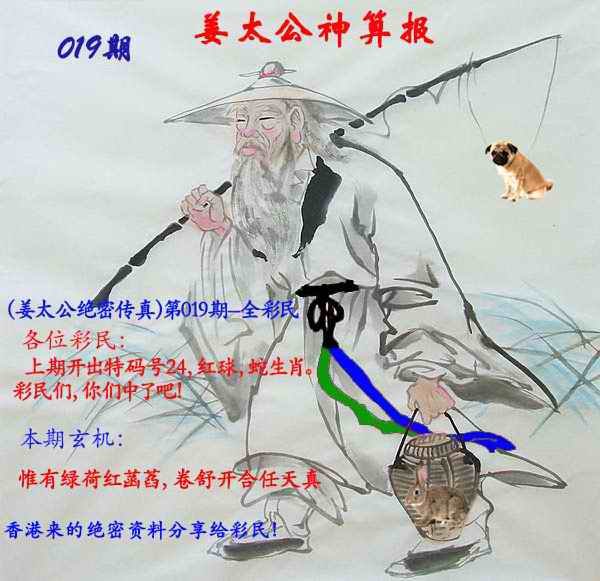 姜太公神算报
019期
(姜太公绝密传真)第019期--全彩民
各位彩民:
上期开出特码号24,红球,蛇生肖。
彩民们,你们中了吧!
本期玄机:
惟有绿荷红菡萏,卷舒开合任天真
香港来的绝密资料分享给彩民!